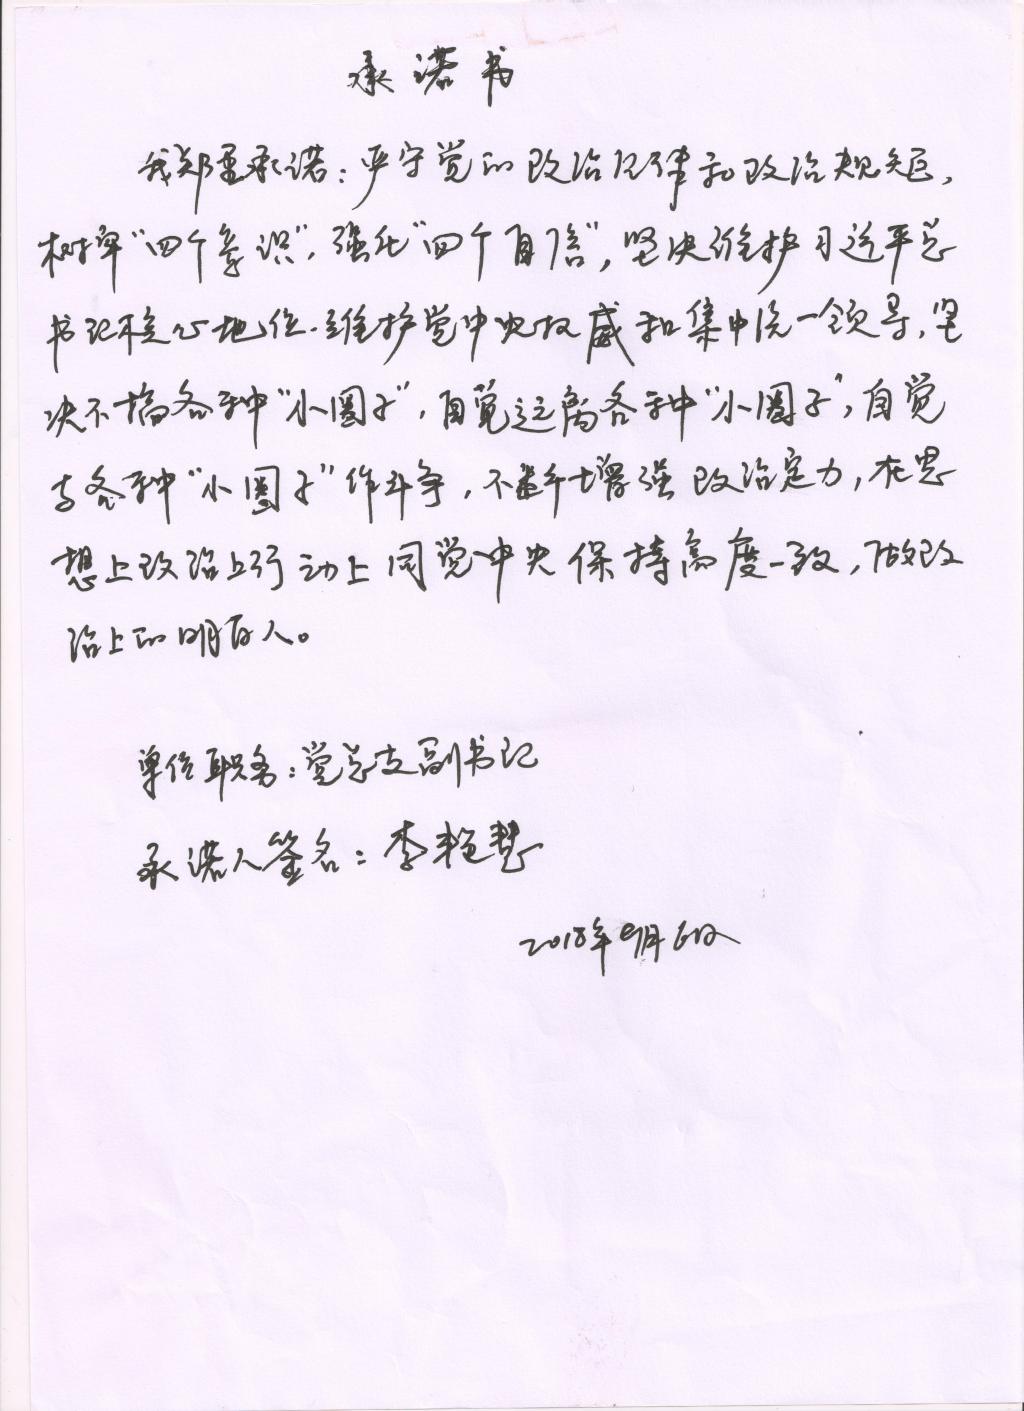 承诺书
我郑重承诺：严守党的政治纪律和政治规矩，
树牢“四个意识”，强化“四个自信”，坚决维护习近平总
书记核心地位、维护党中央权威和集中统一领导，坚
决不搞各种“小圈子”，自觉远离各种“小圈子”，自觉
与各种“小圈子”作斗争，不断增强政治定力，在思
想上政治上行动上同党中央保持高度一致，做政
治上的明白人。
单位职务：党总支副书记
承诺人签名：李艳慧
2018年9月6日